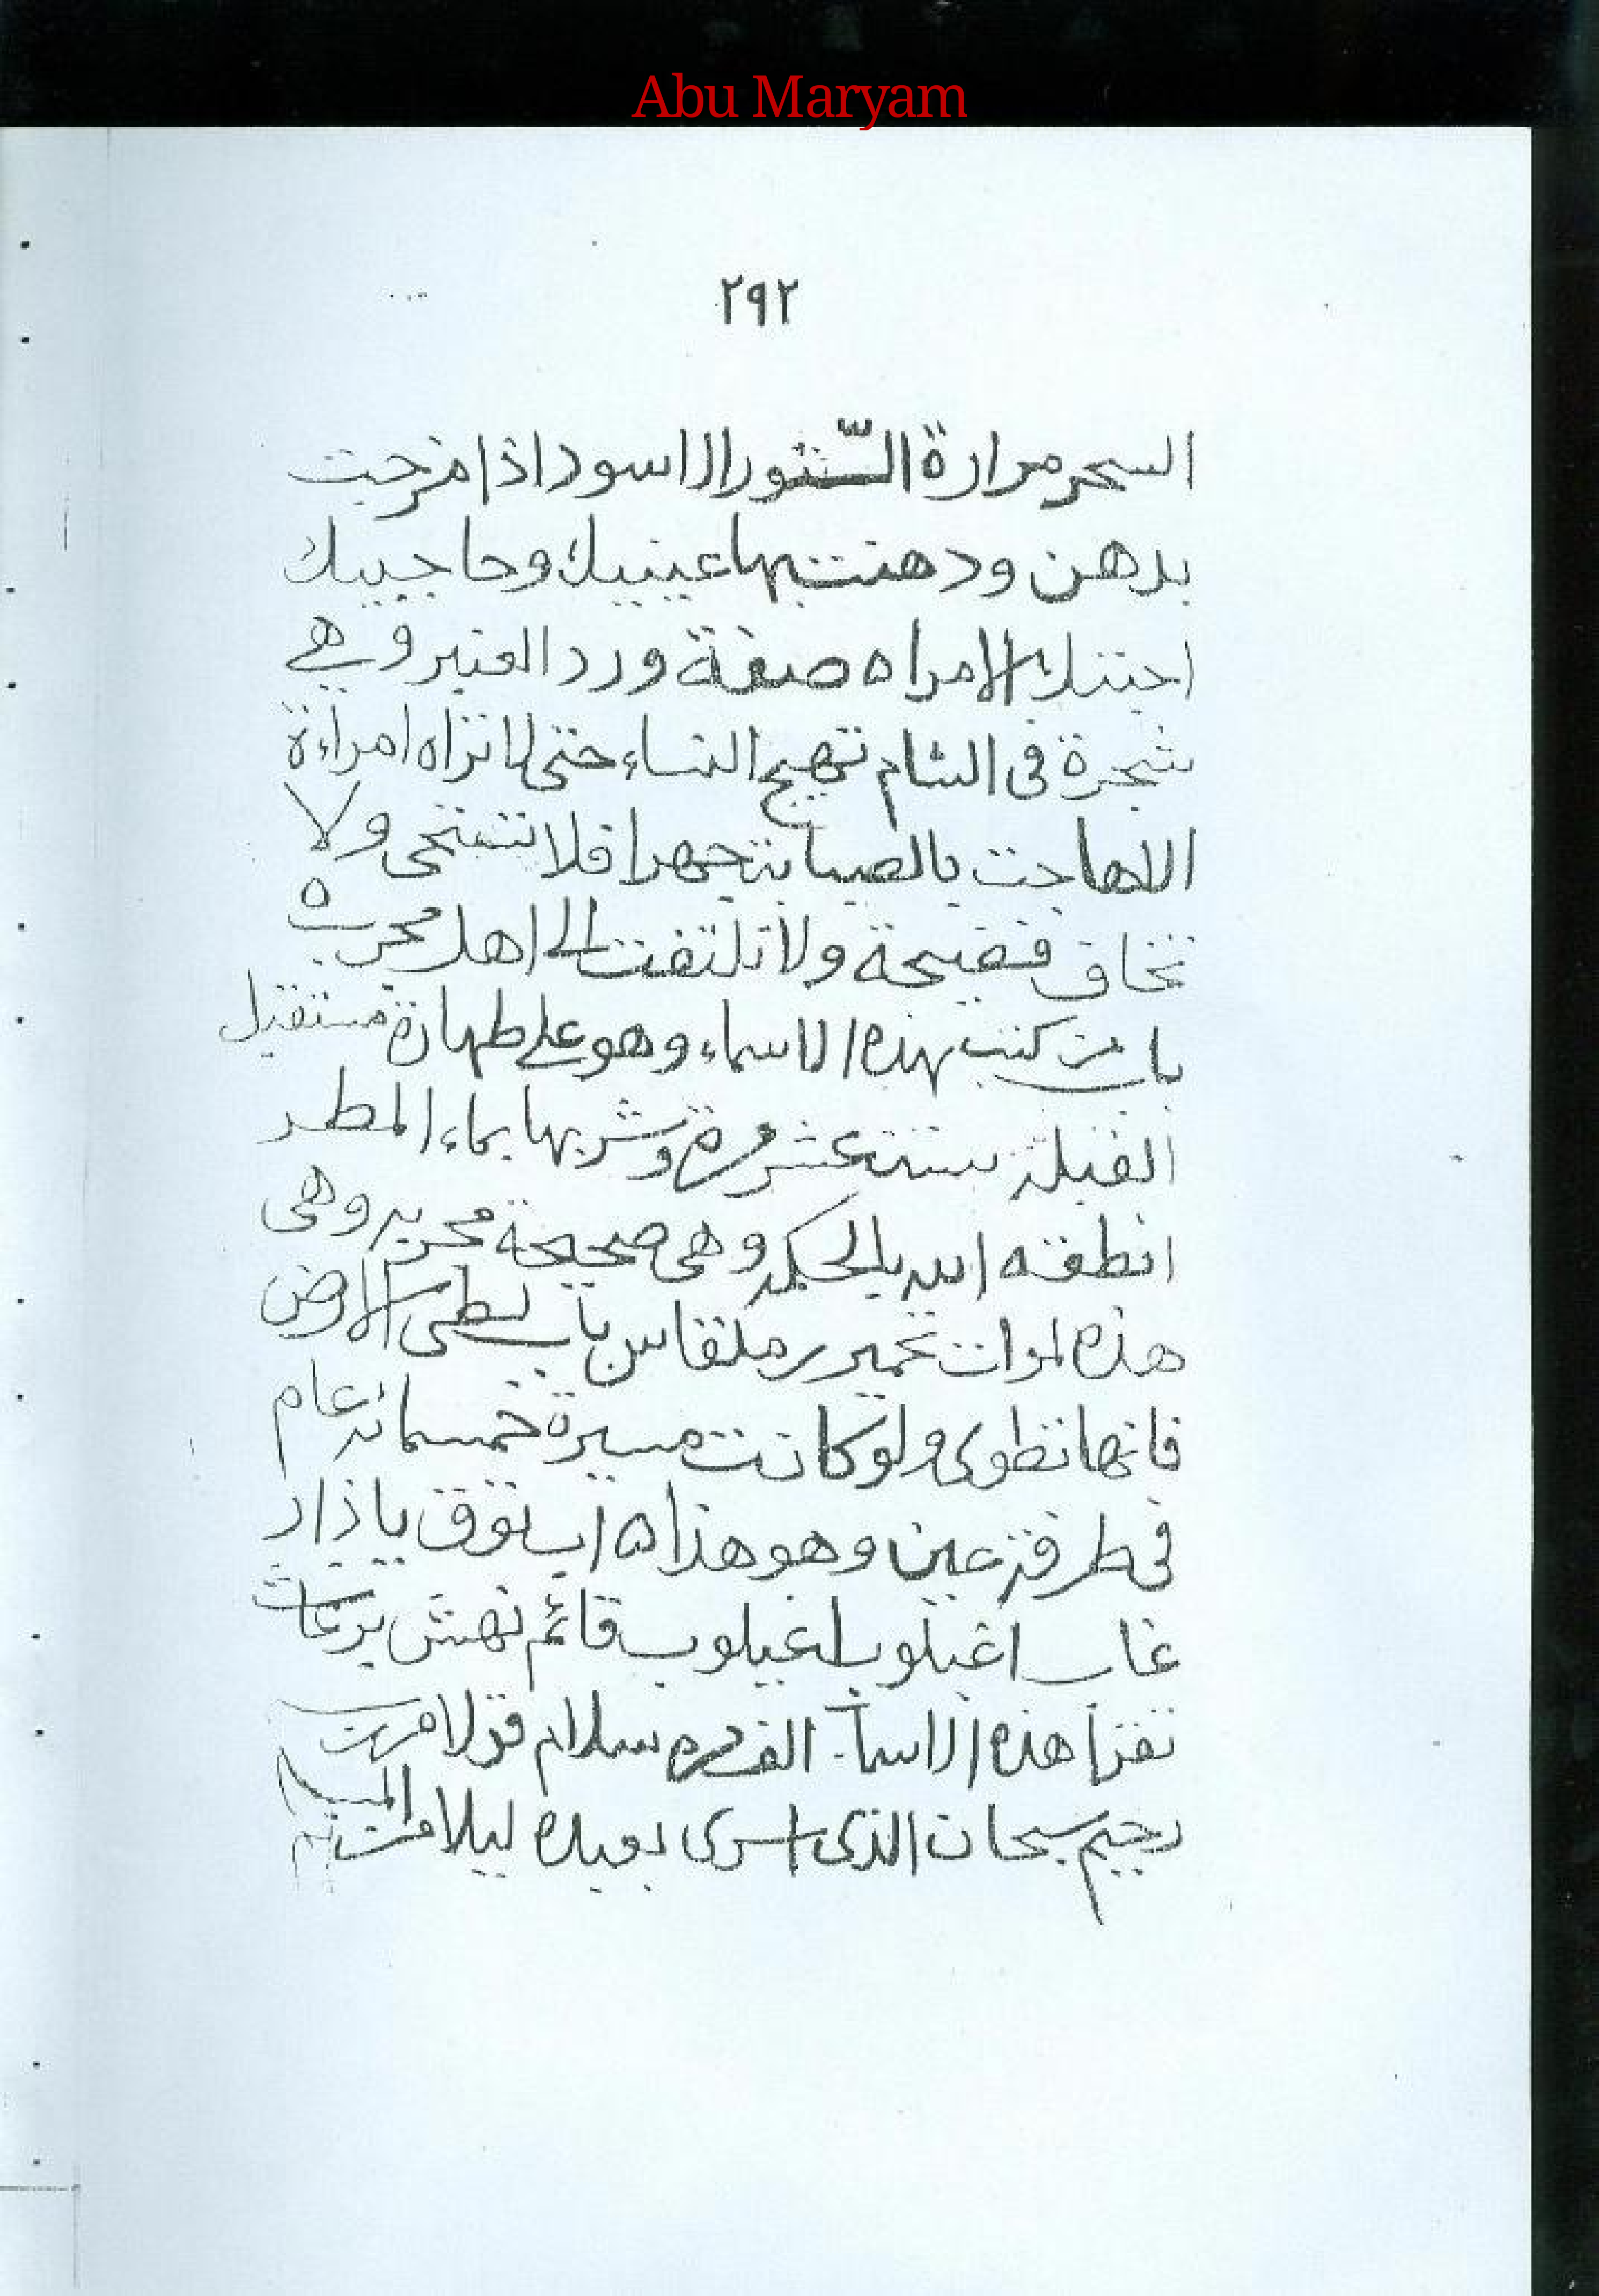 Abu Maryam
٢٩٢
السحر مرارة السّنور الاسود اذا مزجت
بدهن ودهنت بها عينيك وحاجبيك
الامراه صفة ورد العنبر وهي
شجرة في الشام تهيج النساء حتى لا تراه امراءة
الا هاجت بالصيبا بتجهرا فلا تستحى ولا
تخاف فضيحة ولا تلتفت الى اهل مجرب ه
باب من كتب بهذه الاسماء وهو على طهارة مستقبل
القبلة ست عشر مرة وشربها بماء المطر
انطقه الله بالحكمه وهى صحيحة مجربه وهى
هذه باب لطى الارض
فانها تطوى ولو كانت مسيرة خمسمائة عام
في طرفة عين وهو هذا ه
قائم
تقرا هذه الاسما الف مره سلام قولا من رب
رحيم سبحان الذى اسرى بعبده ليلا من